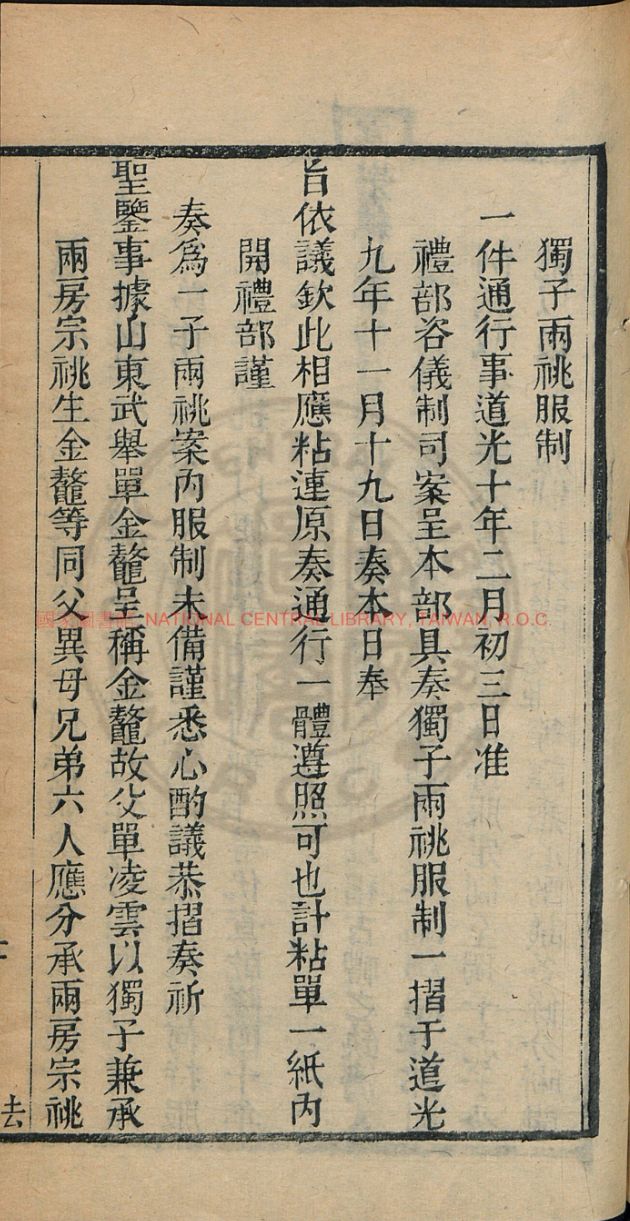 獨子兩祧服制
一件通行事道光十年二月初三日准
禮部咨儀制司案呈本部具奏獨子兩祧服制一摺于道光
九年十一月十九日奏本日奉
旨依議欽此相應粘連原奏通行一體遵照可也計粘單一紙內
開禮部謹
奏爲一子兩祧案內服制未備謹悉心酌議恭摺奏祈
聖鑒事據山東武舉單金鼇呈稱金鼇故父單凌雲以獨子兼承
兩房宗祧生金鼇等同父異母兄弟六人應分承兩房宗祧
去
國家圖書館, NATIONAL CENTRAL LIBRARY, TAIWAN, R.O.C.